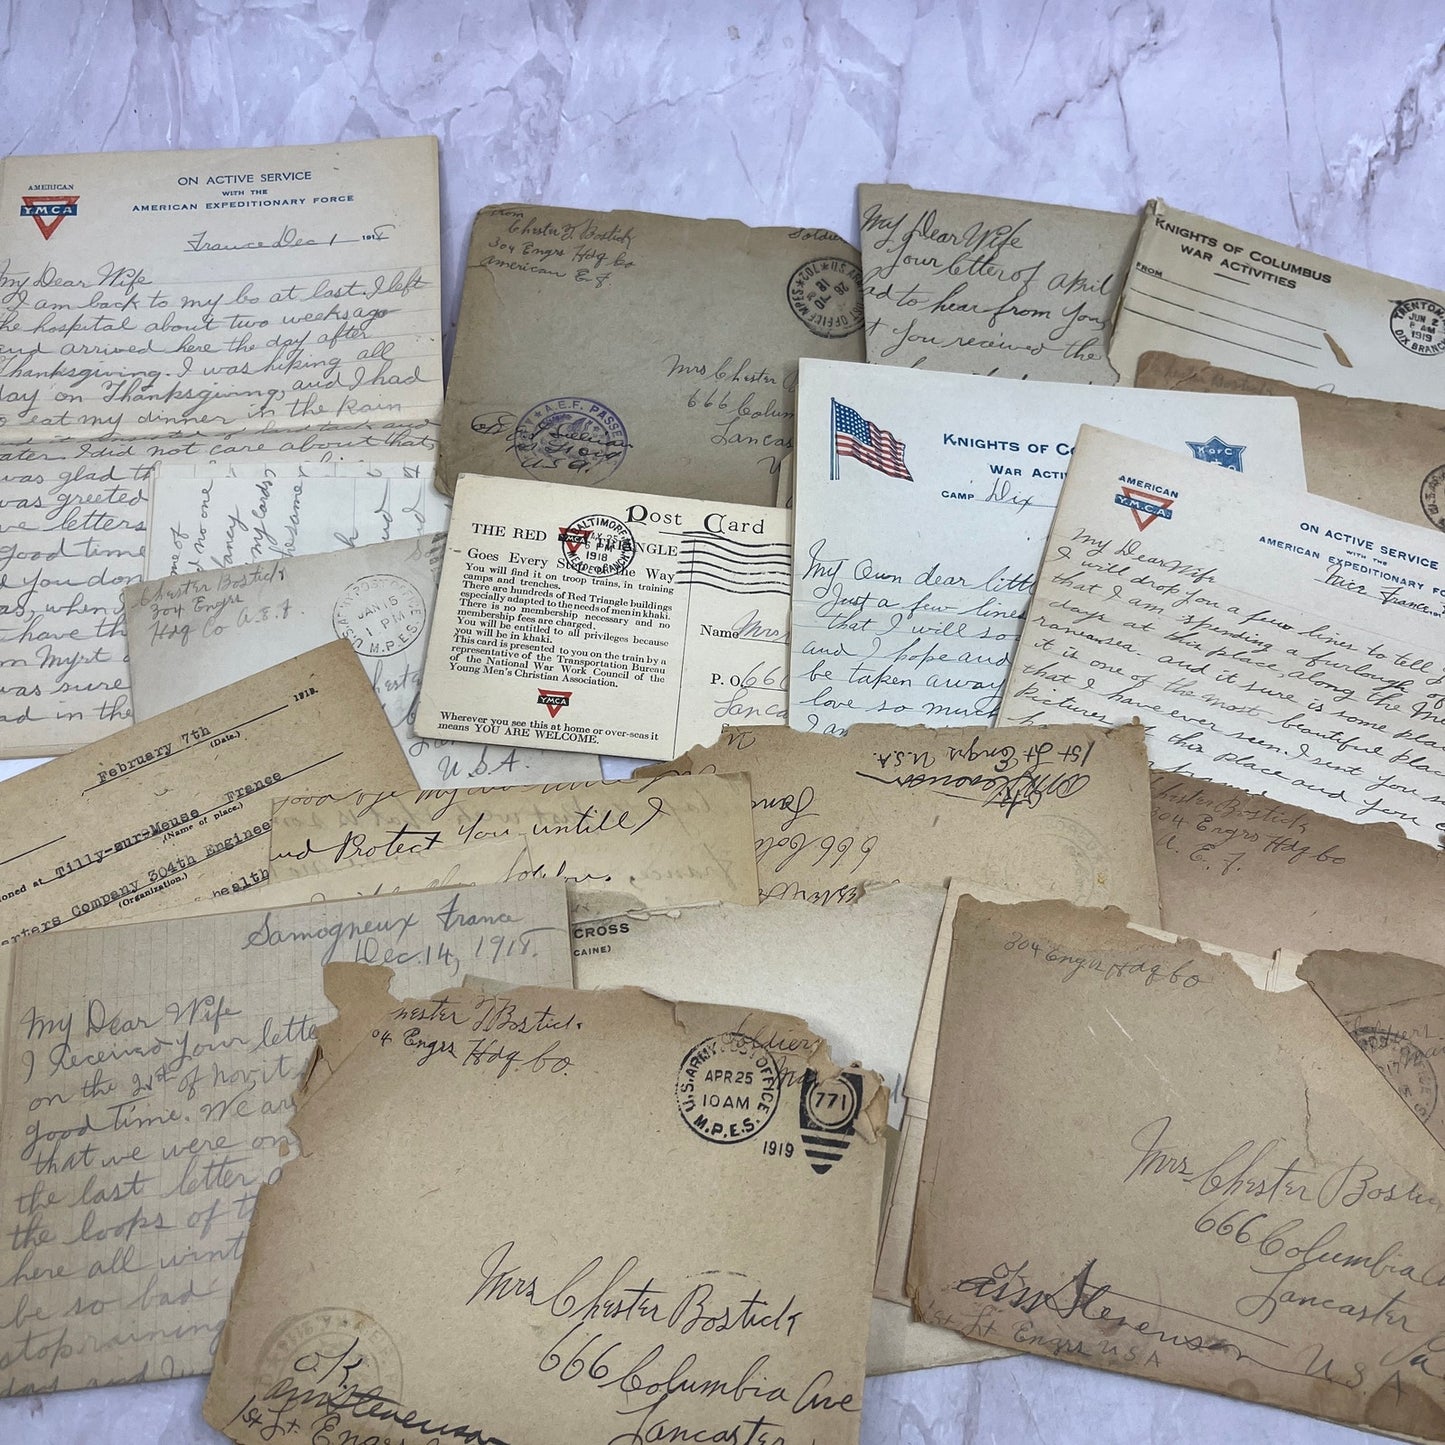 AMERICAN
YMCA
ON ACTIVE SERVICE
WITH THE
AMERICAN EXPEDITIONARY FORCE
France Dec 1 1918
My Dear Wife
I am back to my Co at last. I left
the hospital about two weeks ago
and arrived here the day after
Thanksgiving. I was hiking all
day on Thanksgiving, and I had
to eat my dinner in the Rain
ater. I did not care about that
was glad th
was greeted
ve letters
good time
d you don
as, when
have th
m Myrt
was sure
ad in the
From
Chester T. Bostick
304 Engrs Hdq Co
American E. F.
Soldier
U.S. ARMY POST OFFICE M.P.E.S. 702
A.E.F. PASSE
Mrs Chester
666 Colum
Lancas
U.S.A.
My Dear Wife
Your letter of April
ad to hear from you,
t you received the
KNIGHTS OF COLUMBUS
WAR ACTIVITIES
FROM
TRENTON
JUN 2
6 AM
1919
DIX BRANCH
KNIGHTS OF CO
WAR ACTIV
CAMP Dix
K of C
My Own dear littl
Just a few lines
that I will so
and I hope and
be taken away
love so much
I am
AMERICAN
Y.M.C.A.
ON ACTIVE SERVICE
WITH THE
AMERICAN EXPEDITIONARY FO
Nice France
My Dear Wife
I will drop you a few lines to tell y
that I am spending a furlough of
days at this place, along the Me
ranean sea. and it sure is some plac
it is one of the most beautiful places
that I have ever seen. I sent you s
pictures of this place and you c
Post Card
THE RED YMCA TRIANGLE
BALTIMORE
1918
Goes Every Step of the Way
You will find it on troop trains, in training
camps and trenches.
There are hundreds of Red Triangle buildings
especially adapted to the needs of men in khaki.
There is no membership necessary and no
membership fees are charged.
You will be entitled to all privileges because
you will be in khaki.
This card is presented to you on the train by a
representative of the Transportation Bureau
of the National War Work Council of the
Young Men's Christian Association.
YMCA
Wherever you see this at home or over-seas it
means YOU ARE WELCOME.
Name Mrs
P. O. 666
Lanca
Chester Bostick
304 Engrs
Hdq Co A.E.F
JAN 15
1 PM
M.P.E.S.
U.S.A.
February 7th 1919.
(Date.)
ioned at Tilly-sur-Meuse France
(Name of place.)
arters Company 304th Enginee
(Organization.)
health
and Protect You untill I
1st Lt Engrs U.S.A.
666 Colu
Chester Bostick
304 Engrs Hdq Co
A. E. F.
CROSS
CAINE)
Samogneux France
Dec. 14, 1918.
My Dear Wife
I Received your lette
on the 21st of Nov. it
good time. We are
that we were on
the last letter
the loops of t
here all wint
be so bad
stop raining
hester T Bostick.
04 Engrs Hdq. Co.
Soldiers
Mai
U.S. ARMY POST OFFICE
APR 25
10 AM
M.P.E.S.
1919
771
Mrs Chester Bostick
666 Columbia Ave
Lancaster
O.K.
Stevenson
1st Lt. Engrs
304 Engrs Hdq Co
Mrs Chester Bostick
666 Columbia A
Lancaster
Pa
U.S.A
OK
Stevenson
1st Lt Engrs USA